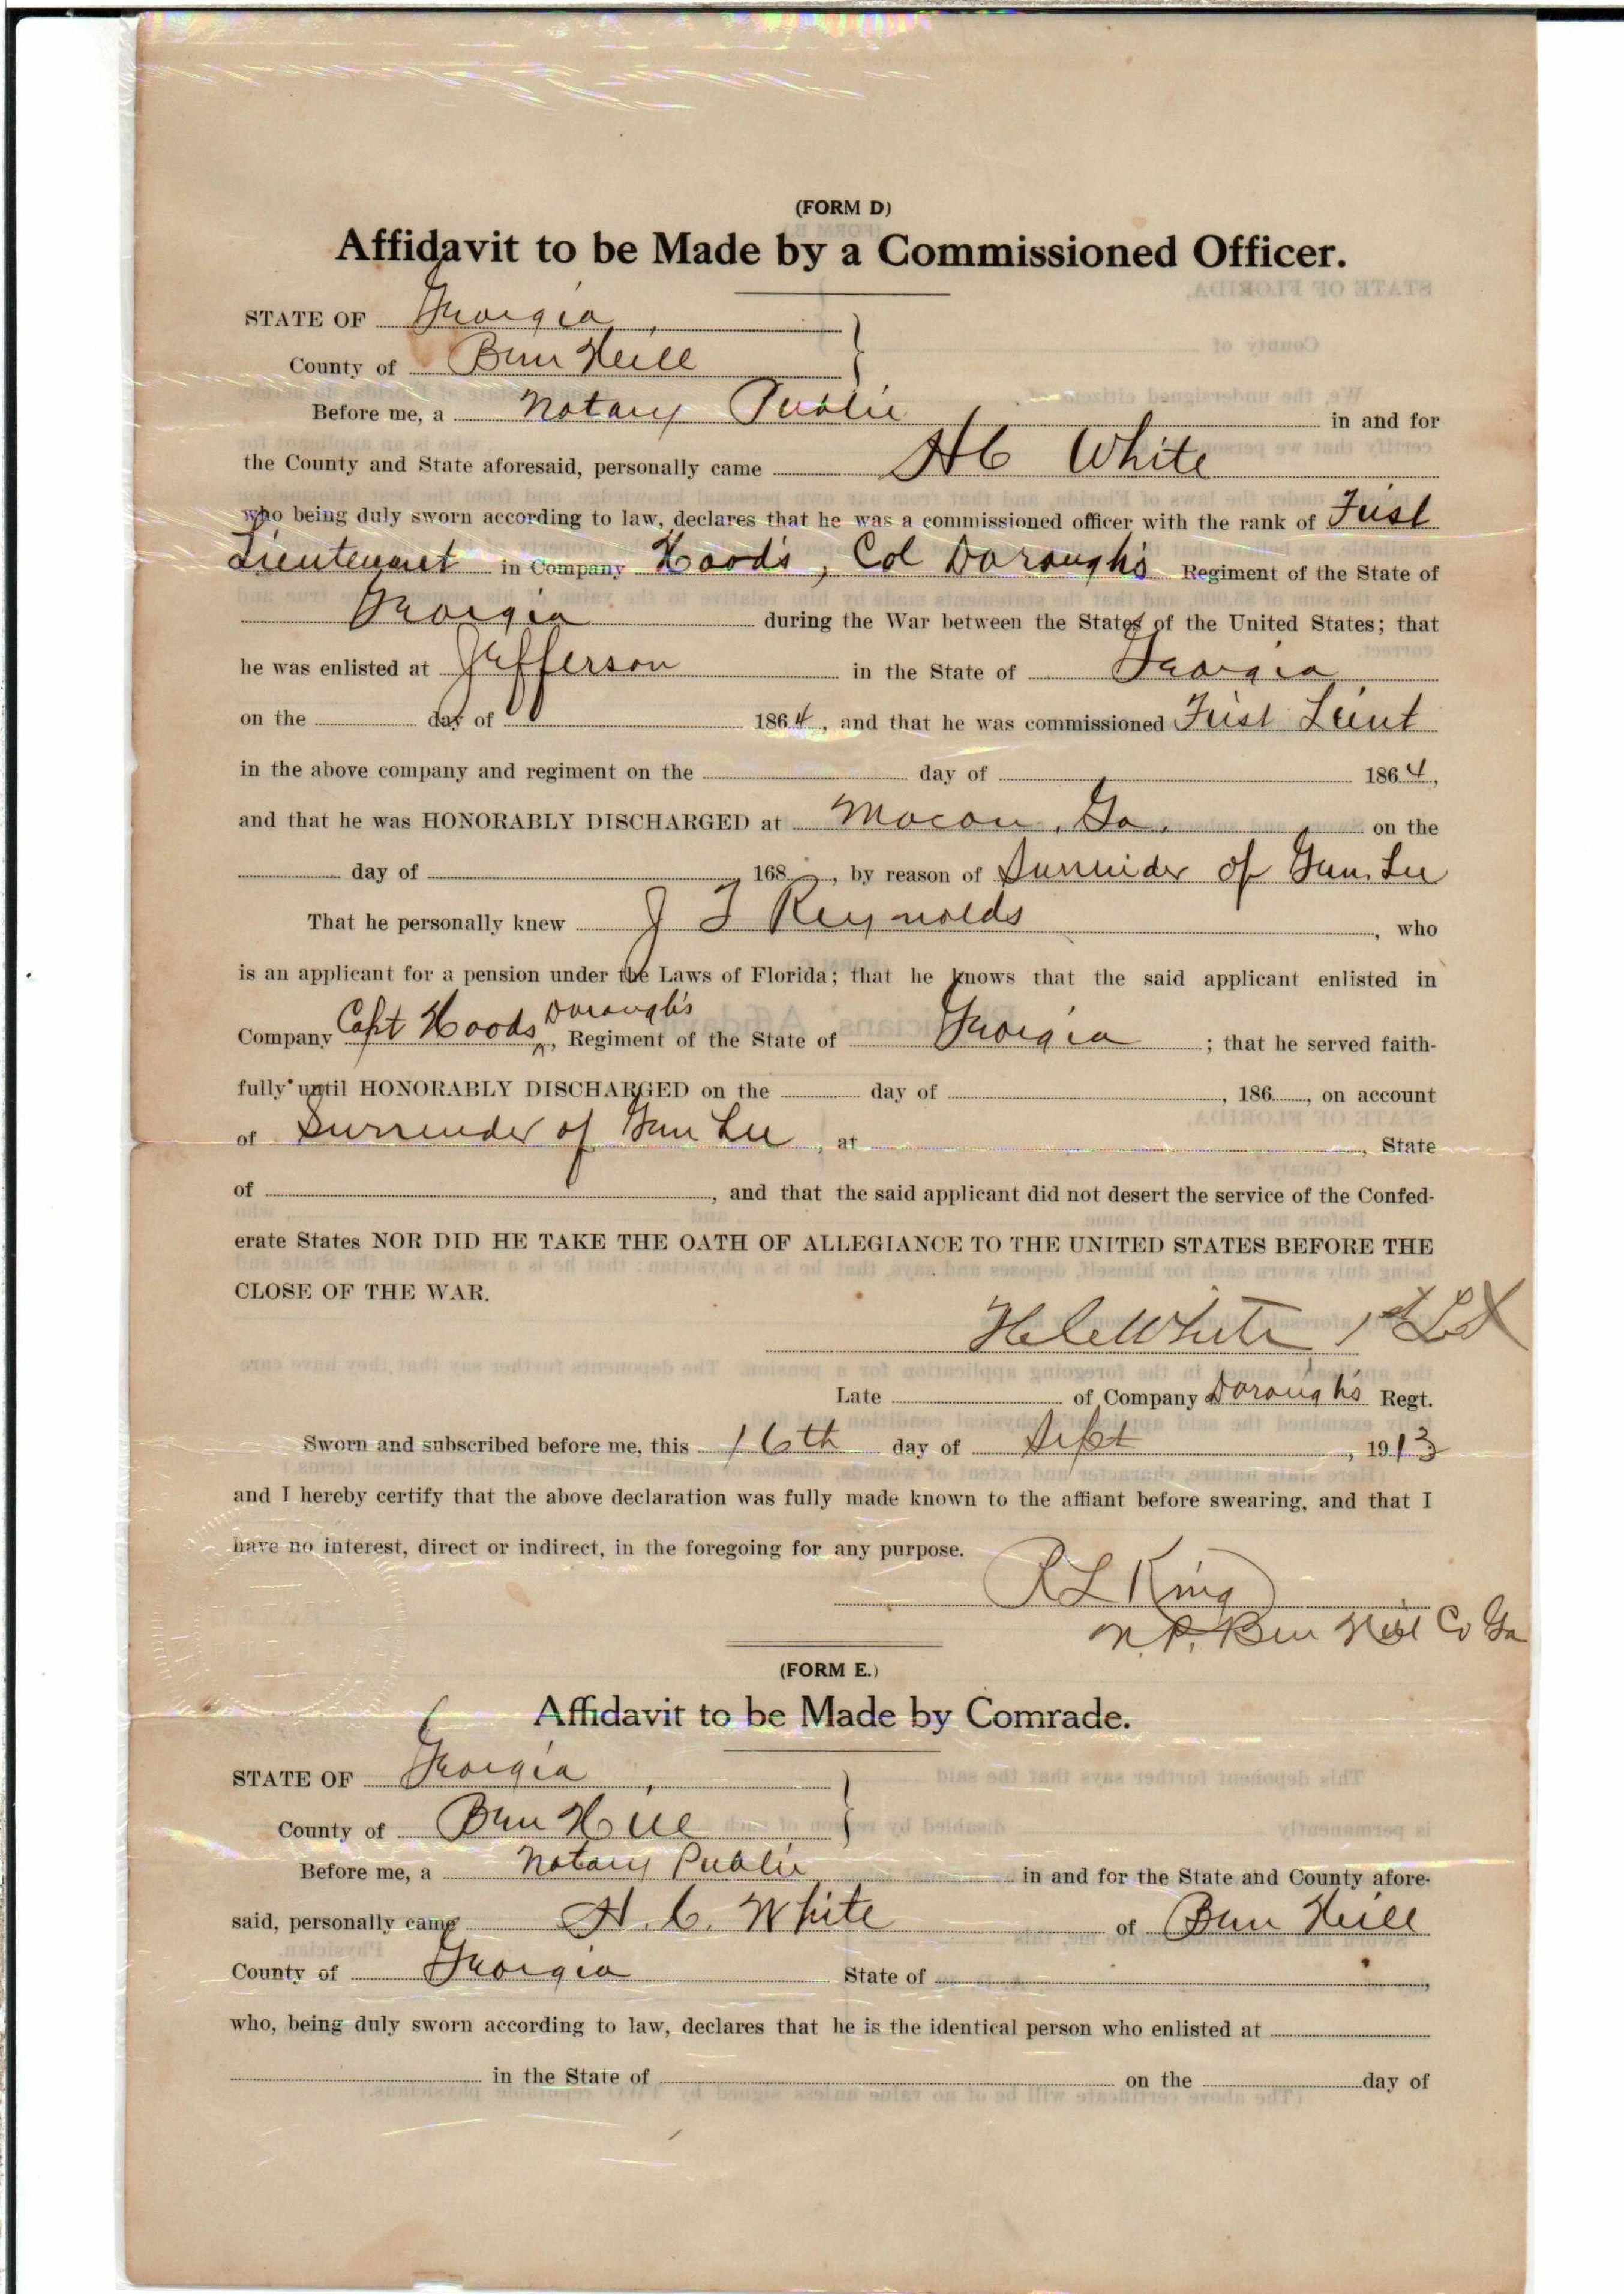 (FORM D)
Affidavit to be Made by a Commissioned Officer.
STATE OF Georgia,
County of Ben Hill
Before me, a Notary Public in and for
the County and State aforesaid, personally came H C White
who being duly sworn according to law, declares that he was a commissioned officer with the rank of First
Lieutenant in Company Hood's, Col Dorough's Regiment of the State of
Georgia during the War between the States of the United States; that
he was enlisted at Jefferson in the State of Georgia
on the day of 1864, and that he was commissioned First Lieut
in the above company and regiment on the day of 1864,
and that he was HONORABLY DISCHARGED at Macon, Ga. on the
day of 168 , by reason of Surrender of Gen. Lee
That he personally knew J T Reynolds, who
is an applicant for a pension under the Laws of Florida; that he knows that the said applicant enlisted in
Company Capt Hoods Dorough's, Regiment of the State of Georgia; that he served faith-
fully until HONORABLY DISCHARGED on the day of , 186 , on account
of Surrender of Gen Lee, at , State
of , and that the said applicant did not desert the service of the Confed-
erate States NOR DID HE TAKE THE OATH OF ALLEGIANCE TO THE UNITED STATES BEFORE THE
CLOSE OF THE WAR.
H C White 1st Lt
Late of Company Dorough's Regt.
Sworn and subscribed before me, this 16th day of Sept, 1913
and I hereby certify that the above declaration was fully made known to the affiant before swearing, and that I
have no interest, direct or indirect, in the foregoing for any purpose.
R L King
N.P. Ben Hill Co Ga
(FORM E.)
Affidavit to be Made by Comrade.
STATE OF Georgia,
County of Ben Hill
Before me, a Notary Public in and for the State and County afore-
said, personally came H. C. White of Ben Hill
County of Georgia State of ,
who, being duly sworn according to law, declares that he is the identical person who enlisted at
in the State of on the day of